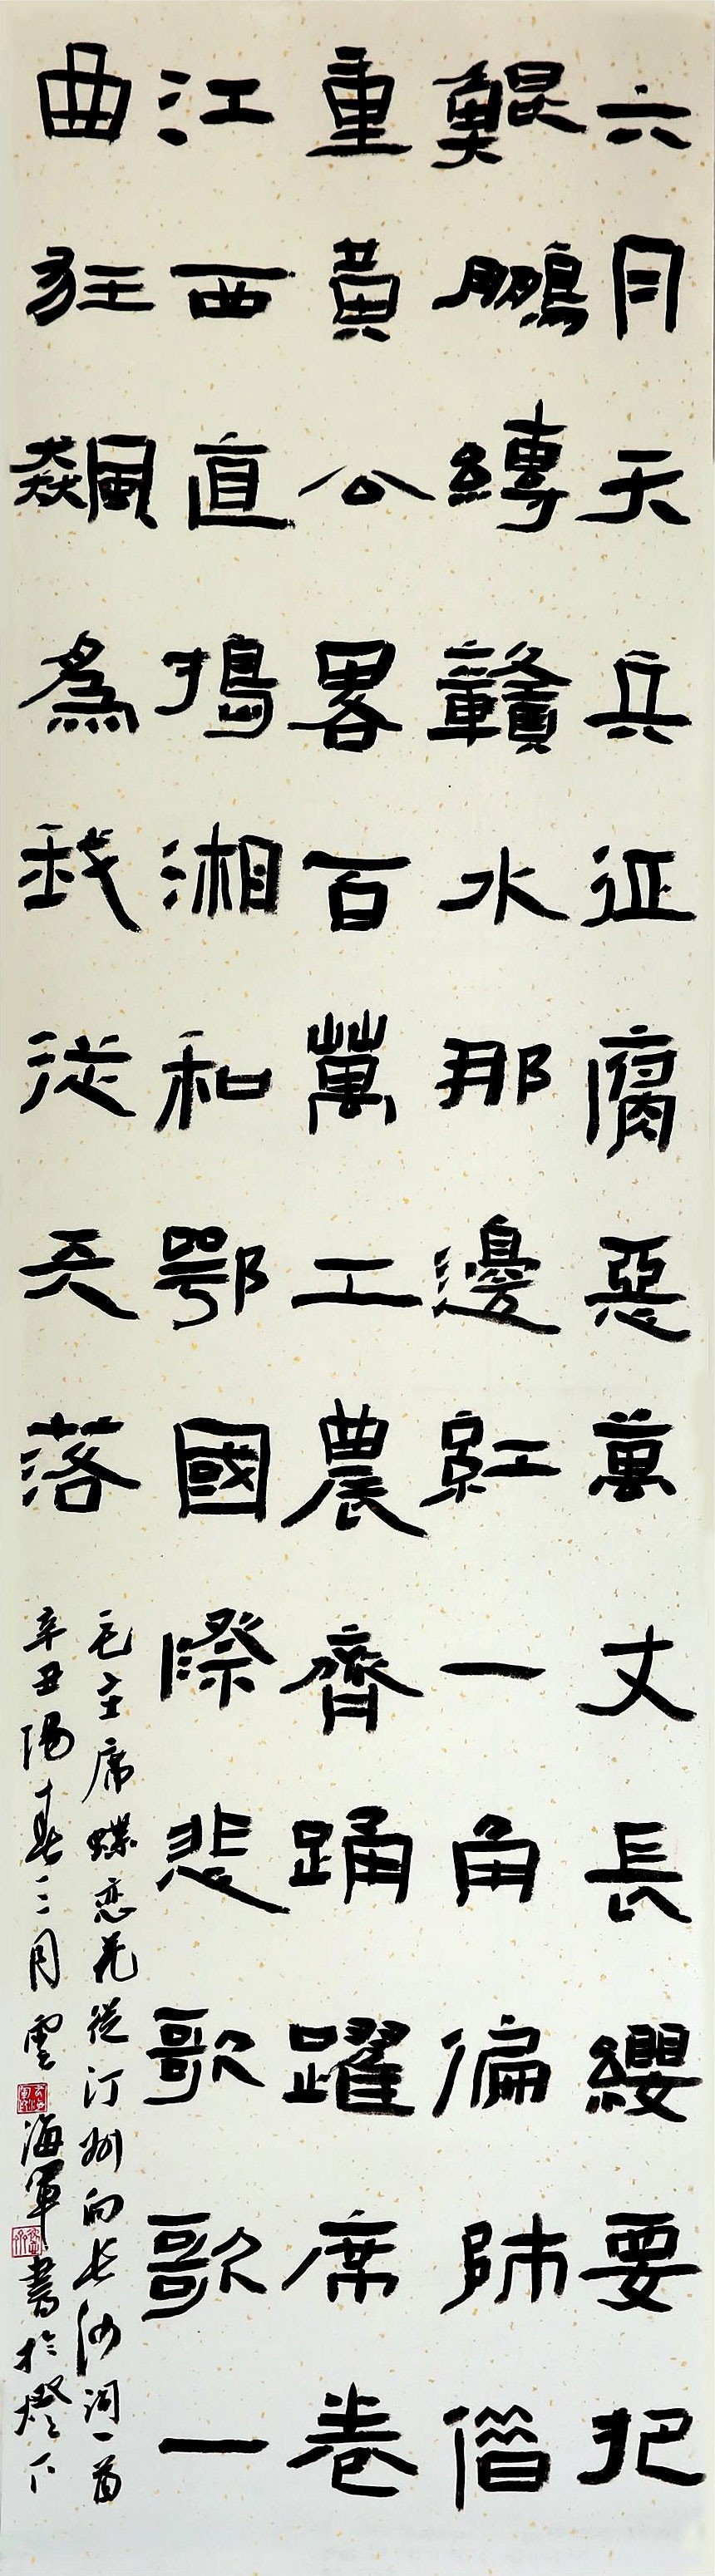 六月天兵征腐惡萬丈長纓要把
鯤鵬縛贛水那邊紅一角偏師借
重黃公畧百萬工農齊踊躍席卷
江西直搗湘和鄂國際悲歌歌一
曲狂飆為我從天落
毛主席蝶恋花從汀州向长沙词一首
辛丑陽春三月雲海軍書於燈下